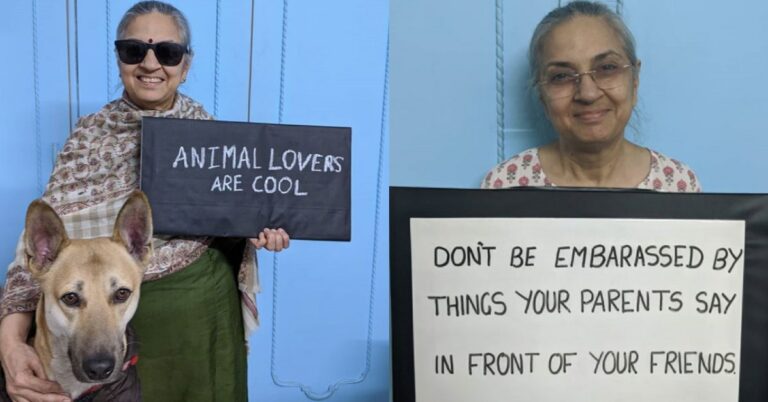 ANIMAL LOVERS
ARE COOL
DON'T BE EMBARASSED BY
THINGS YOUR PARENTS SAY
IN FRONT OF YOUR FRIENDS.